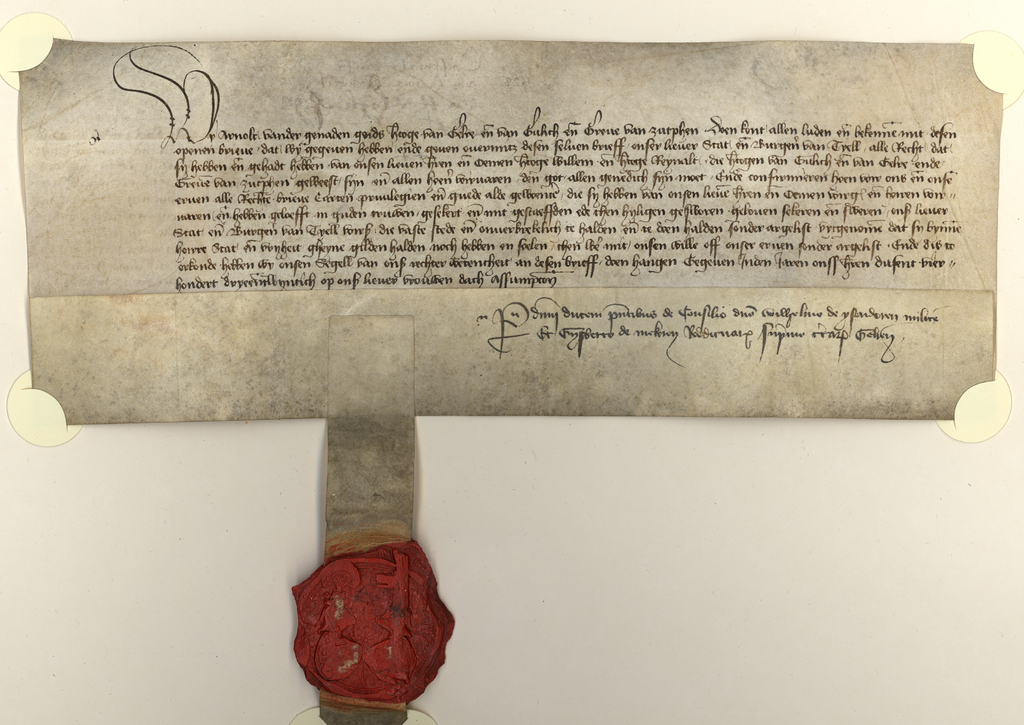 Wy Arnolt vander genaden goids Hertoge van Gelre en̄ van Guilich en̄ Greve van Zutphen doen kont allen luden en̄ bekennē mit desen
openen brieve dat wy gegeven hebben ende geven overmitz desen selven brieff onser liever Stat en̄ Burgen van Tyell alle Recht dat
sy hebben en̄ gehadt hebben van onsen lieven Hren en̄ Oemen Hertoge Willem en̄ Hertoge Reynalt die Hertogen van Guilich en̄ van Gelre ende
Greve van Zutphen geweest syn en̄ allen hoeren vorvaren den got allen genedich syn moet Ende confirmieren hoen vor ons en̄ onse
erven alle Rechte brieve Carten privilegien en̄ guede alde gewoente die sy hebben van onsen lieve Hren en̄ Oemen vorg en̄ horen vor=
varen en̄ hebben geloefft in guden truwen gesekert en̄ mit gestaeffden ede then hyligen geswoeren geloven sekeren en̄ sweren onss liever
Stat en̄ Burgen van Tyell vors die vaste stede en̄ onverbrekelich te halden en̄ te doen halden sonder argelist uytgenome dat sy bynnē
hoerre Stat en̄ vryheit gheyne gilden halden noch hebben en soelen then were mit onsen wille off onser erven sonder argelist Ende des to
orkonde hebben wy onsen Segell van onss rechter wetentheit an desen brieff doen hangen Gegeven Inden Jaeren onss Hren dusent vier=
hondert dryeentwyntich op onss liever vrouwen dach Assumptoŋ
Per dnm̄ ducem pn̄tibus de Consilio dn̄o Wilhelmo de ysendoren milite
Et Gysberto de mekren Redituarᶎ